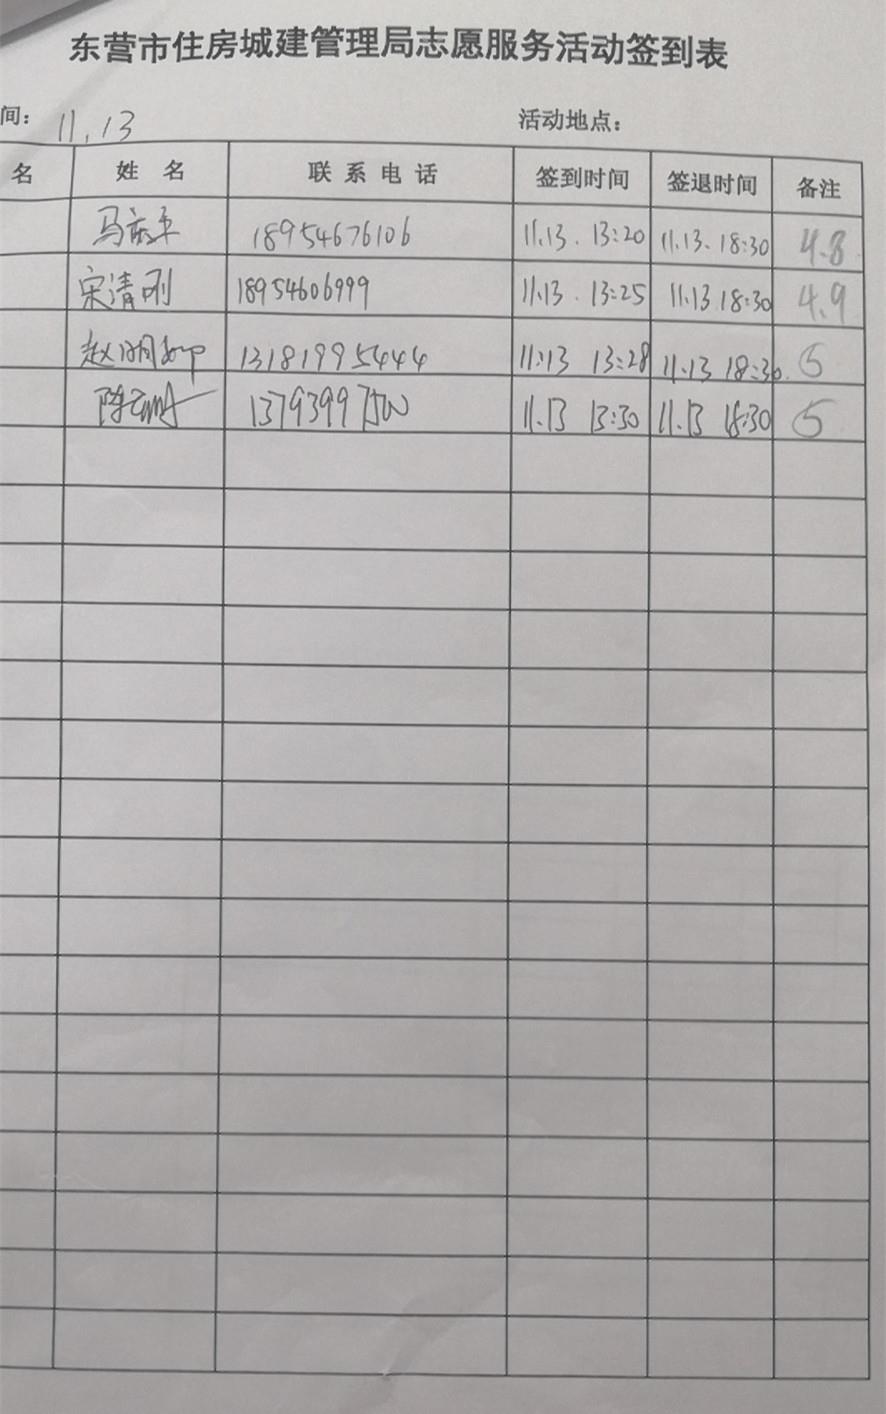 东营市住房城建管理局志愿服务活动签到表
间: 11.13 活动地点:
名 姓 名 联系电话 签到时间 签退时间 备注
马 18954676106 11.13. 13:20 11.13. 18:30 4.8
宋清刚 18954606999 11.13. 13:25 11.13 18:30 4.9
赵明 13181995444 11.13 13:28 11.13 18:30. 5
陈 13793997500 11.13 13:30 11.13 18:30 5